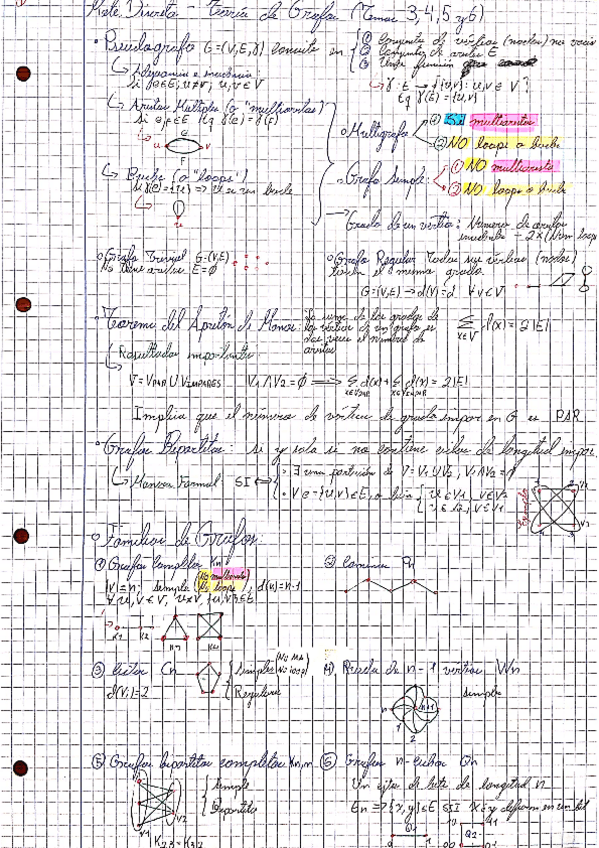 Mate Discreta - Teoría de Grafos (Temas 3,4,5 y 6)
• Pseudografo G=(V,E,γ) consiste en
① Conjunto de vértices (nodos) no vacío
② Conjunto de aristas E
③ Una función
↳ γ: E → {{u,v}: u,v ∈ V}
tq γ(e) = {u,v}
↳ Adyacencia e incidencia:
si e∈E; u≠v; u,v ∈ V
↳ Aristas Multiples (o "multiaristas")
si e,f∈E tq γ(e)=γ(f)
e
u v
F
↳ Bucles (o "loops")
si γ(e)={u} => u es un bucle
u
o Multigrafo
① SI multiaristas
② NO loops o bucle
o Grafo Simple:
① NO multiarista
② NO loops o bucle
→ Grado de un vértice: Número de aristas
incidentes + 2x(Num loops
o Grafo Trivial G=(V,E)
No tiene aristas E=∅
o Grafo Regular Todos sus vértices (nodos)
tienen el mismo grado.
G=(V,E) → d(v)=d ∀v∈V
• Teorema del Apretón de Manos: La suma de los grados de
los vértices de un grafo es
dos veces el número de
aristas
∑ d(x) = 2|E|
x∈V
Resultados importantes:
V=VPAR ∪ VIMPARES V1∩V2=∅ ⟹ ∑ d(x) + ∑ d(x) = 2|E|
x∈VPAR x∈VIMPAR
Implica que el número de vértices de grado impar en G es PAR
• Grafos Bipartitos: si y solo si no contiene ciclos de longitud impar
↳ Manera Formal SI ⟺
• ∃ una partición de V=V1∪V2, V1∩V2=∅
• ∀ e={u,v}∈E, o bien { u∈V1, v∈V2
u∈V2, v∈V1
Ejemplo
V2
o Familias de Grafos
① Grafos Completos Kn
|V|=n; simple (No multiarista
No loops), d(v)=n-1
∀ u,v∈V, u≠v, {u,v}∈E
K1 K2 K3 K4
② Caminos Pn
③ Ciclos Cn
d(Vi)=2
{ Simples (NO MA
NO loop)
Regulares
④ Rueda de n-1 vértices Wn
simple
n n+1 1
2
⑤ Grafos bipartitos completos Km,n
{ Simple
Bipartito
V1 V2
K2,3 = K3,2
⑥ Grafos n-cubos Qn
Un ejta de bits de longitud n
En => {x,y}∈E SSI x e y difieren en un bit
Q1
0 1
Q2